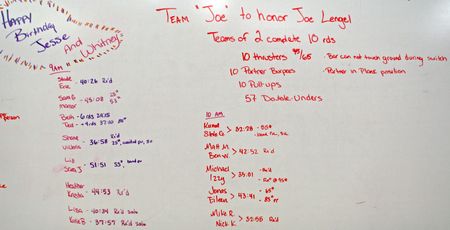 Happy
Birthday
Jesse
And Whitney
Team "Joe" to honor Joe Lengel
Teams of 2 complete 10 rds
10 thrusters 95/65 · Bar can not touch ground during switch
10 Partner Burpees · Partner in Plank position
10 Pull-ups
57 Double-Unders
9am
Steve
Eric - 40:26 Rx'd
Sam G - 45:08
Beth - 6 rds
Shane
Victoria - 36:58 Rx'd
Liz
Sara J - 51:51
Heather
Krista - 44:53 Rx'd
Lisa - 40:34 Rx'd solo
Katie B - 37:57 Rx'd solo
10 AM
Steve G > 32:28
Matt M.
Ben W. > 42:52 Rx'd
Michael
Izzy > 35:01 - Rx'd
Jonas
Eileen > 43:41 - 65#
Mike R.
Nick K. > 35:56 Rx'd
Person